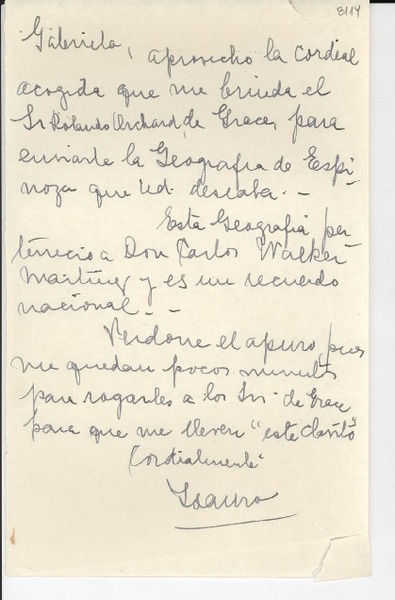 8114
Gabriela, aprovecho la cordial
acogida que me brinda el
Sr Rolando Orchard, de Grace, para
enviarle la Geografia de Espi-
noza que Ud. deseaba. -
Esta Geografia per
teneció a Don Carlos Walker
Martinez y es un recuerdo
nacional. - -
Perdone el apuro, pues
me quedan pocos minutos
para rogarles a los Srs. de Grace
para que me lleven "este
Cordialmente
Isauro